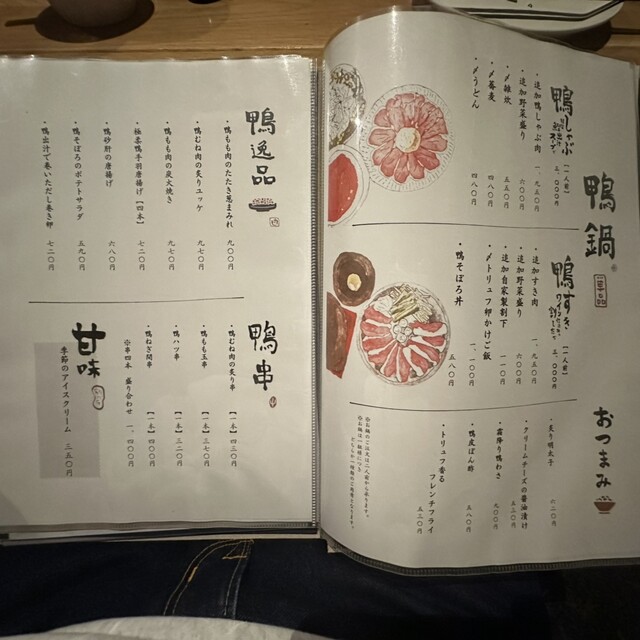 鴨鍋
鴨しゃぶ
（一人前）
三、〇〇〇円
・追加鴨しゃぶ肉 一、九五〇円
・追加野菜盛り 六〇〇円
〆雑炊 五五〇円
〆蕎麦 四八〇円
〆うどん 四八〇円
鴨すき
（一人前）
三、〇〇〇円
・追加すき肉 一、九五〇円
・追加野菜盛り 六〇〇円
・追加自家製割下 一〇〇円
〆トリュフ卵かけご飯 一、一〇〇円
・鴨そぼろ丼 五八〇円
おつまみ
・炙り明太子 六二〇円
・クリームチーズの醤油漬け 五三〇円
・霜降り鴨わさ 九〇〇円
・鴨皮ぽん酢 五八〇円
・トリュフ香る
フレンチフライ 五二〇円
鴨逸品
・鴨もも肉のたたき葱まみれ 九〇〇円
・鴨むね肉の炙りユッケ 九七〇円
・鴨もも肉の炭火焼き 九七〇円
・極上鴨手羽唐揚げ【四本】 七二〇円
・鴨砂肝の唐揚げ 六八〇円
・鴨そぼろのポテトサラダ 五九〇円
・鴨出汁で巻いただし巻き卵 七二〇円
鴨串
・鴨むね肉の炙り串 【一本】四三〇円
・鴨もも玉串 【一本】三七〇円
・鴨ハツ串 【一本】三二〇円
・鴨ねぎ間串 【一本】四〇〇円
※串四本 盛り合わせ 一、四〇〇円
甘味
季節のアイスクリーム 三五〇円